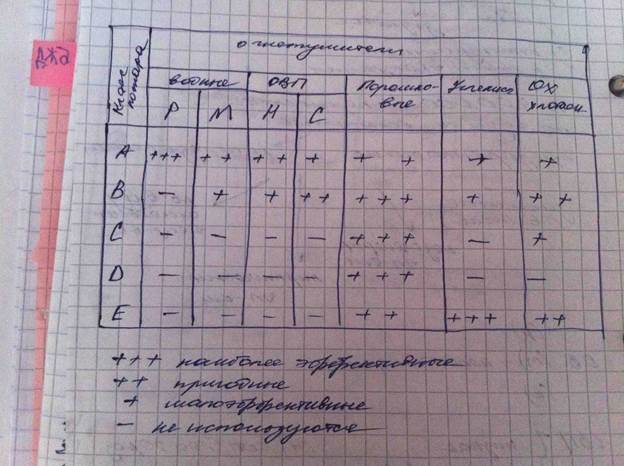 ДЖ2
Класс пожара
огнетушители
водные ОВП Порошковые Углекисл ОХ хладон
Р М Н С
A +++ ++ ++ + ++ + +
B – + + ++ +++ + ++
C – – – – +++ – +
D – – – – +++ – –
E – – – – ++ +++ ++
+++ наиболее эффективные
++ пригодные
+ малоэффективные
– не используются